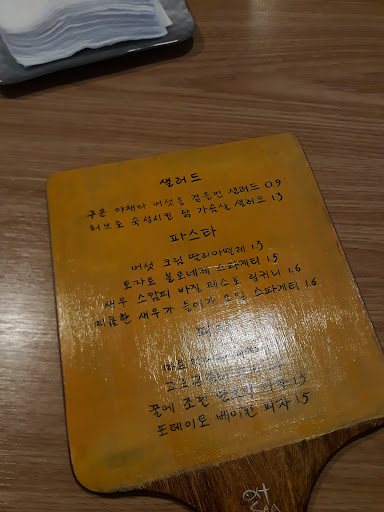 샐러드
구운 야채와 버섯을 곁들인 샐러드 0.9
허브로 숙성시킨 닭 가슴살 샐러드 1.3
파스타
버섯 크림 딸리아뗄레 1.3
토마토 볼로네제 스파게티 1.5
새우 스캄피 바질 페스토 링귀니 1.6
매콤한 새우가 들어간 오일 스파게티 1.6
피자
꿀에 조린 피자 1.5
포테이토 베이컨 피자 1.5